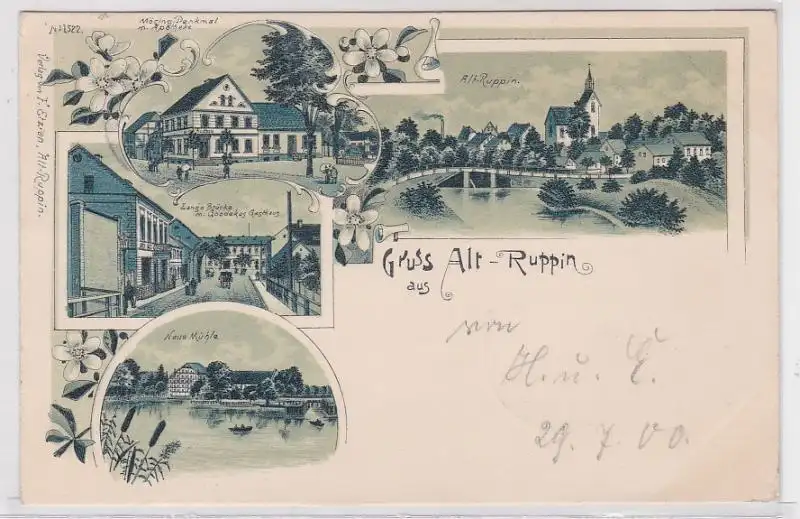 No 1522.
Verlag von F. Etzien, Alt-Ruppin.
Möring Denkmal
m. Apotheke
Alt-Ruppin.
Lange Brücke
m. Goedekes Gasthaus
Neue Mühle
Gruss Alt-Ruppin
aus
von
H. u. E.
29. 7. 00.